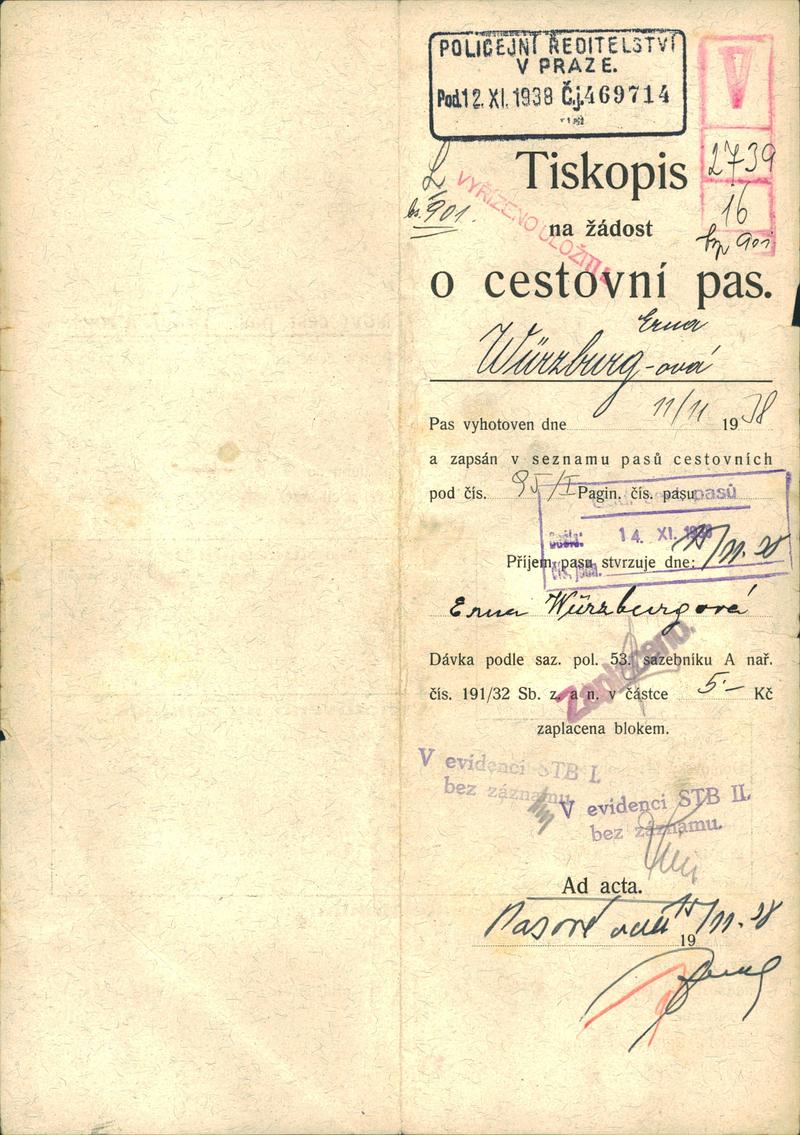 POLICEJNÍ ŘEDITELSTVÍ
V PRAZE.
Pod. 12. XI. 1938 Č.j. 469714
V
2739
16
901
bs. 901.
VYŘÍZENO ULOŽITI
Tiskopis
na žádost
o cestovní pas.
Erna
Würzburg-ová
Pas vyhotoven dne 11/11 1938
a zapsán v seznamu pasů cestovních
pod čís. 95/I Pagin. čís. pasu
pasů
Došlo: 14. XI. 1938
Příjem pasu stvrzuje dne: 15/11. 38
Erna Würzburgová
Zaplaceno.
Dávka podle saz. pol. 53. sazebníku A nař.
čís. 191/32 Sb. z. a n. v částce 5·– Kč
zaplacena blokem.
V evidenci STB I.
bez záznamu
V evidenci STB II.
bez záznamu.
Ad acta.
Pasové odd. 15/11. 38
19